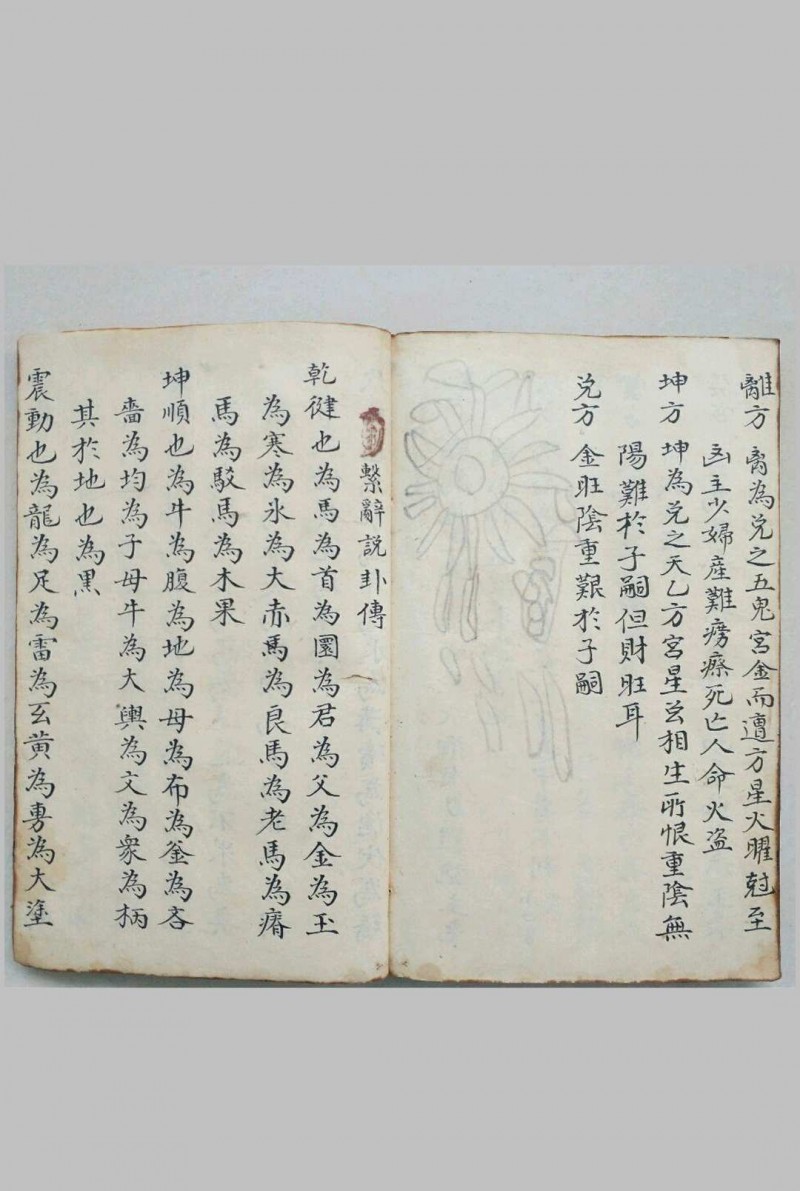 離方 离為兑之五鬼宮金而遭方星火曜尅至
凶主少婦産難癆瘵死亡人命火盗
坤方 坤為兑之天乙方宮星並相生所恨重陰無
陽難於子嗣但財旺耳
兑方 金旺陰重艱於子嗣
繫辭說卦傳
乾健也為馬為首為圜為君為父為金為玉
為寒為氷為大赤馬為良馬為老馬為瘠
馬為駁馬為木果
坤順也為牛為腹為地為母為布為釜為吝
嗇為均為子母牛為大輿為文為衆為柄
其於地也為黑
震動也為龍為足為雷為玄黄為旉為大塗